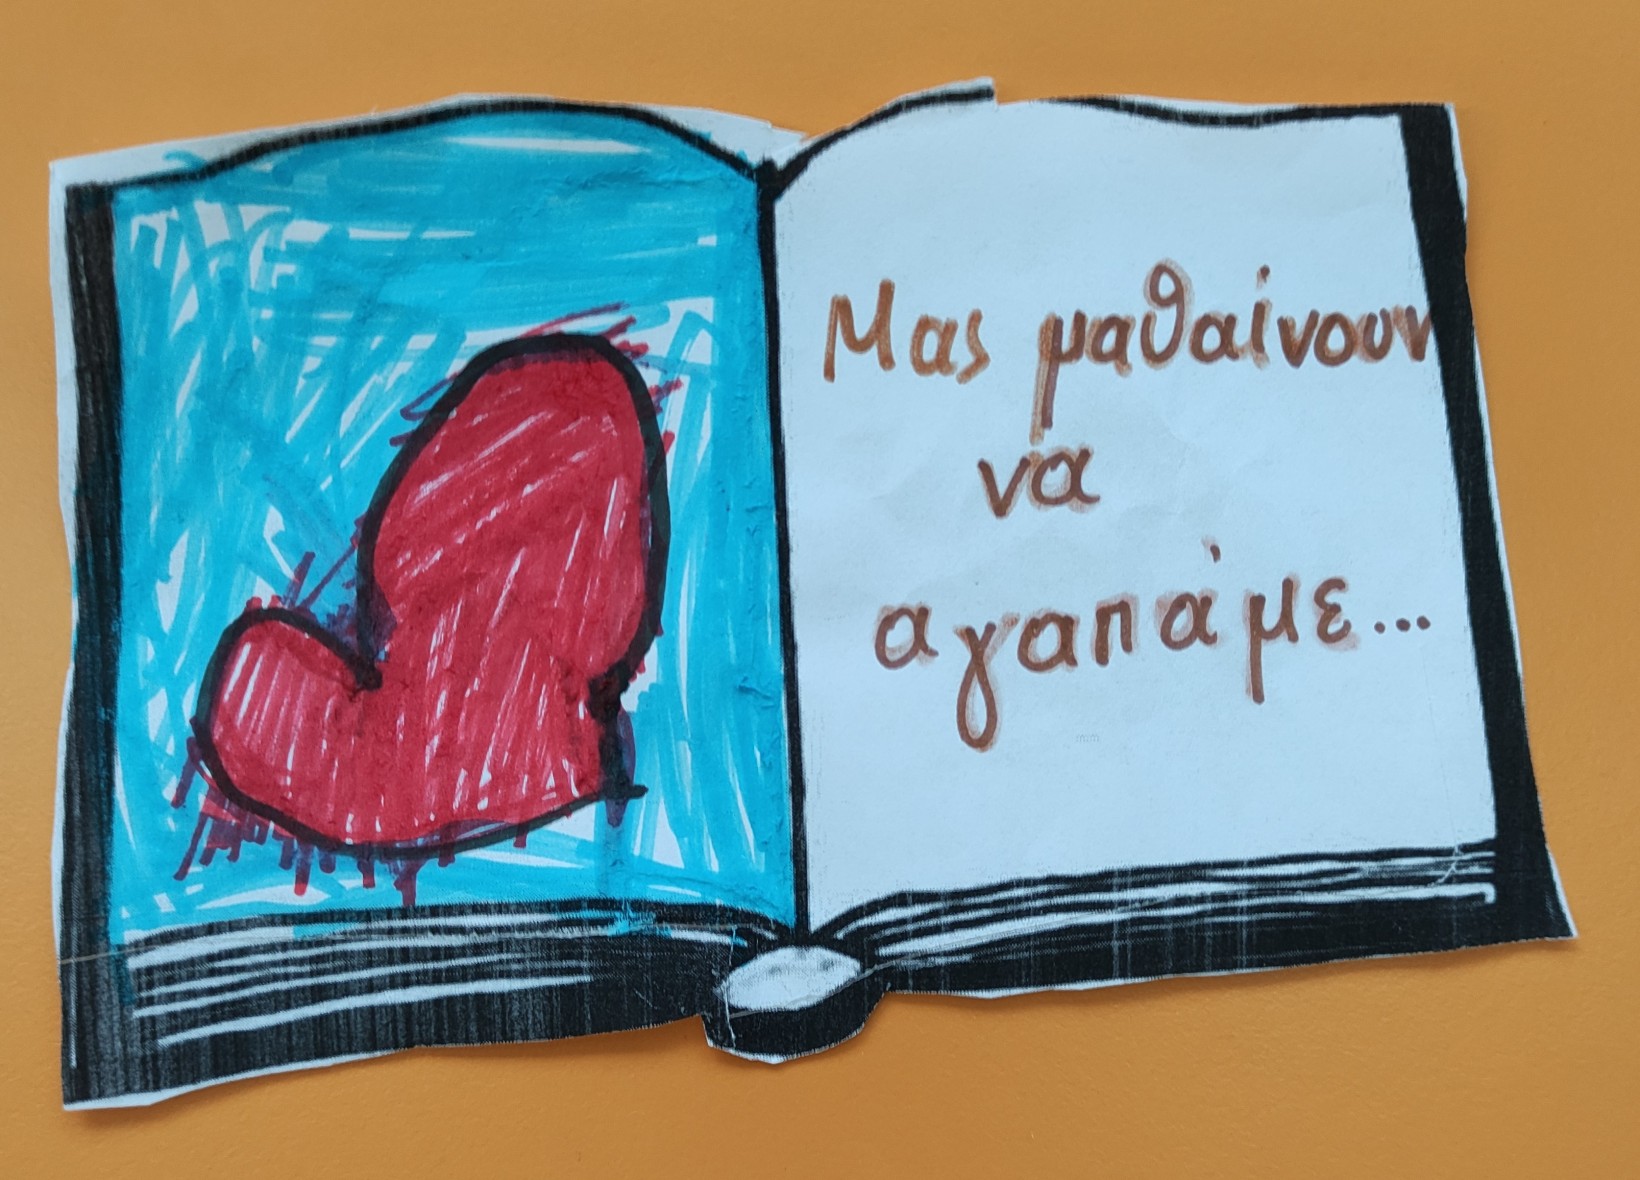 Μας μαθαίνουν
να
αγαπάμε...